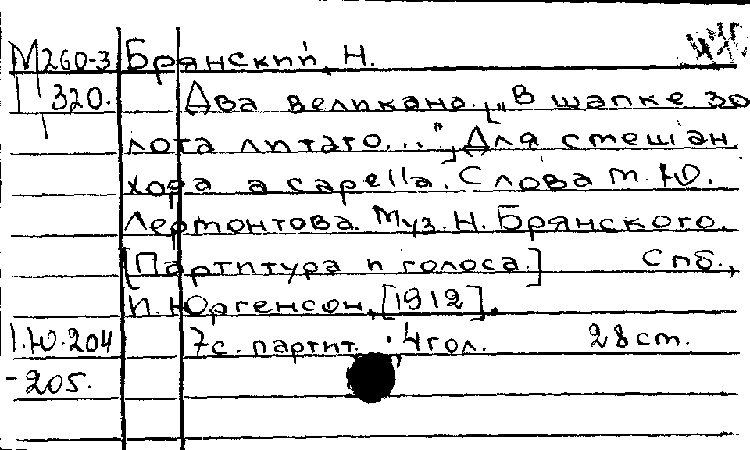 М260-3 Брянский, Н.
320. Два великана. ["В шапке зо
лота литаго..."] Для смешан.
хора a capella. Слова М. Ю.
Лермонтова. Муз. Н. Брянского.
[Партитура и голоса.] Спб.,
И. Юргенсон, [1912].
I.Ю.204 7с. партит., 4 гол. 28 ст.
-205.